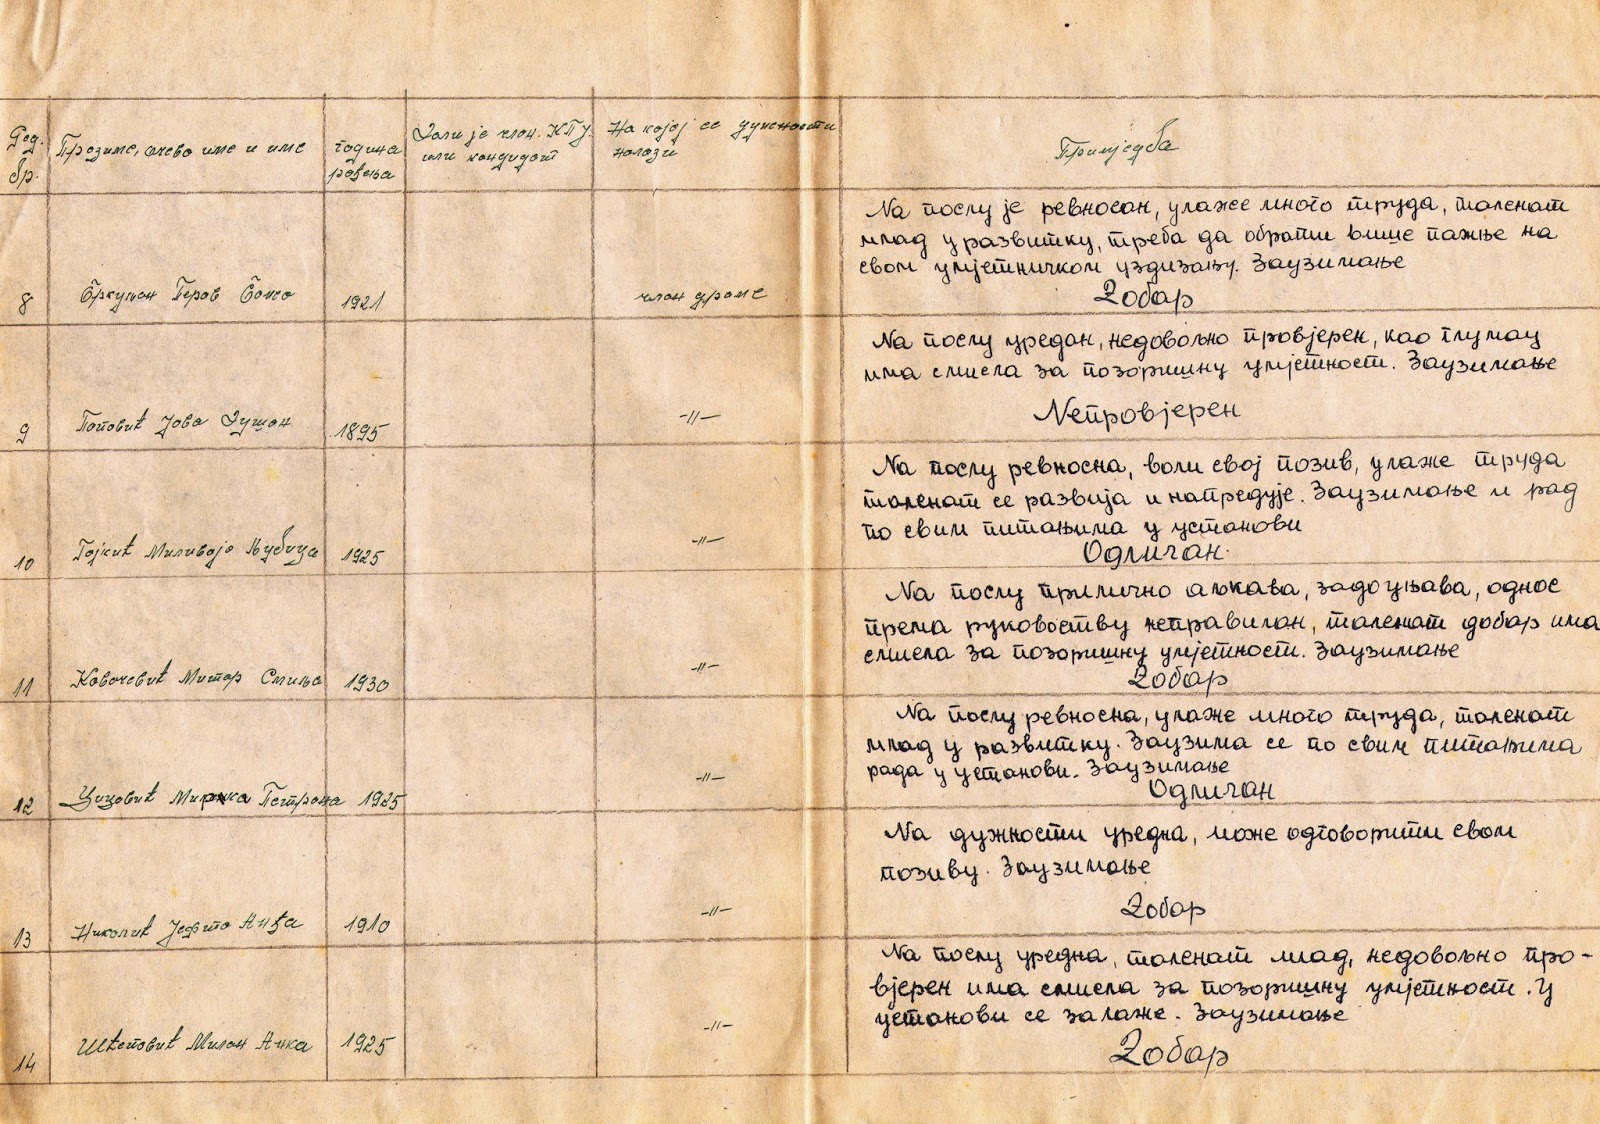 Ред. бр.
Презиме, очево име и име
година рођења
Дали је члан. КПЈ. или кандидат
На којој се дужности налази
Примједба
8
Перов
1921
члан драме
На послу је ревносан, улаже много труда, таленат
млад у развитку, треба да обрати више пажње на
свом умјетничком уздизању. Заузимање
Добар
9
Поповић Јова Душан
1895
-〃-
На послу уредан, недовољно провјерен, као глумац
има смисла за позоришну умјетност. Заузимање
Непровјерен
10
Гајкић Миливоје Љубица
1925
-〃-
На послу ревносна, воли свој позив, улаже труда
таленат се развија и напредује. Заузимање и рад
по свим питањима у установи
Одличан.
11
Ковачевић Митар Смиља
1930
-〃-
На послу прилично аљкава, задоцњава, однос
према руковоству неправилан, таленат добар има
смисла за позоришну умјетност. Заузимање
Добар
12
Петрана
1925
-〃-
На послу ревносна, улаже много труда, таленат
млад у развитку. Заузима се по свим питањима
рада у установи. Заузимање
Одличан
13
Николић Јефто Анђа
1910
-〃-
На дужности уредна, може одговорити свом
позиву. Заузимање
Добар
14
Шћеповић Милан Анка
1925
-〃-
На послу уредна, таленат млад, недовољно про-
вјерен има смисла за позоришну умјетност. У
установи се залаже. Заузимање
Добар